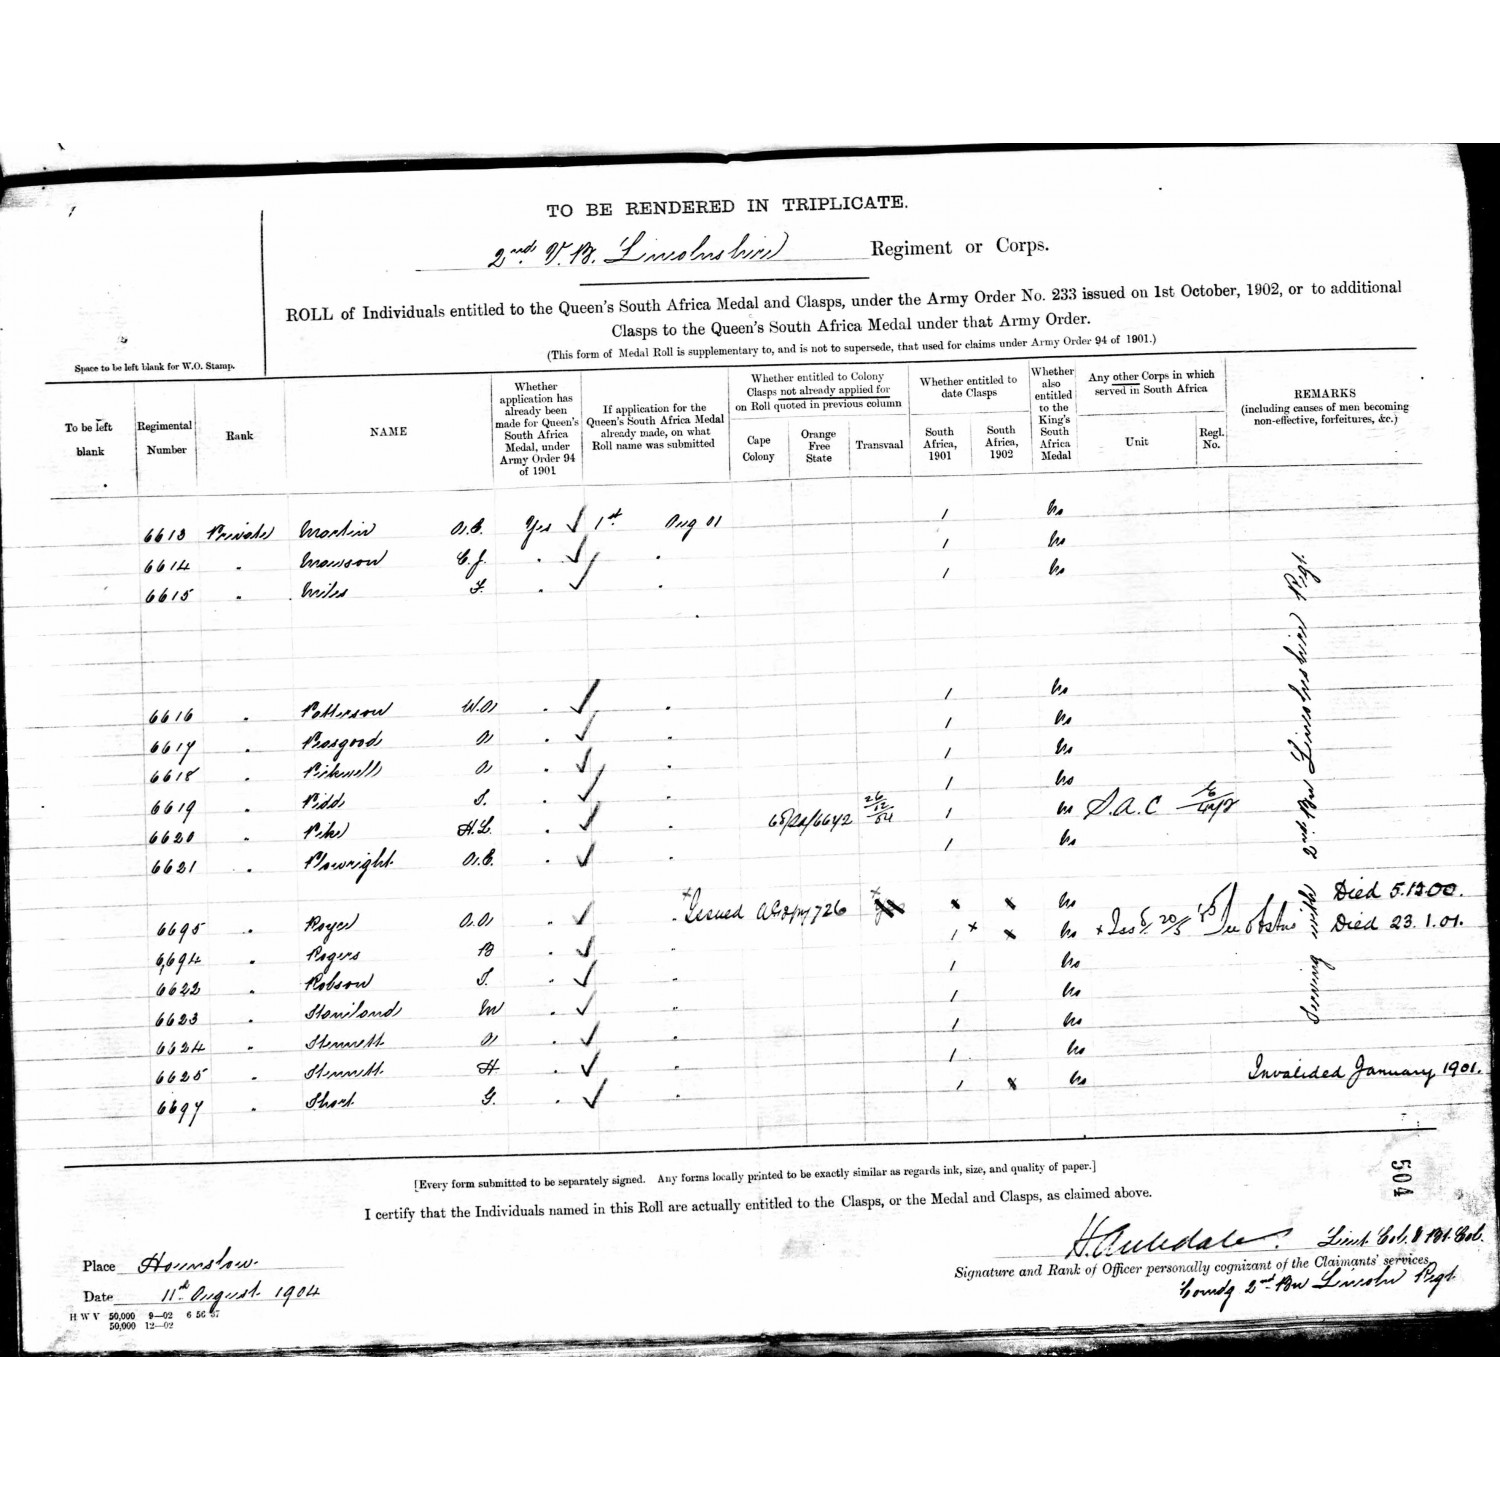 TO BE RENDERED IN TRIPLICATE.
2nd V.B. Lincolnshire Regiment or Corps.
ROLL of Individuals entitled to the Queen's South Africa Medal and Clasps, under the Army Order No. 233 issued on 1st October, 1902, or to additional
Clasps to the Queen's South Africa Medal under that Army Order.
(This form of Medal Roll is supplementary to, and is not to supersede, that used for claims under Army Order 94 of 1901.)
Space to be left blank for W.O. Stamp.
To be left blank
Regimental Number
Rank
NAME
Whether application has already been made for Queen's South Africa Medal, under Army Order 94 of 1901
If application for the Queen's South Africa Medal already made, on what Roll name was submitted
Whether entitled to Colony Clasps not already applied for on Roll quoted in previous column
Cape Colony
Orange Free State
Transvaal
Whether entitled to date Clasps
South Africa, 1901
South Africa, 1902
Whether also entitled to the King's South Africa Medal
Any other Corps in which served in South Africa
Unit
Regl. No.
REMARKS
(including causes of men becoming non-effective, forfeitures, &c.)
6613 Private Martin A.E. Yes ✓ 1st Aug 01 1 No
6614 " Mawson C.J. " ✓ " 1 No
6615 " Miles F. " ✓ " 1 No
6616 " Patterson W.A " ✓ " 1 No
6617 " Peasgood A " ✓ " 1 No
6618 " Pickwell A " ✓ " 1 No
6619 " Pidd S. " ✓ " 1 No
6620 " Pike H.L. " ✓ " 26/12/04 1 No S.A.C
6621 " Plowright A.E. " ✓ " 1 No
6695 " Royce A.A " ✓ " Issued x x No Died 5.12.00.
6694 " Rogers B " ✓ " 1 x x No Died 23.1.01.
6622 " Robson S. " ✓ " 1 No
6623 " Staniland M " ✓ " 1 No
6624 " Stennett A " ✓ " 1 No
6625 " Stennett H " ✓ " 1 No
6697 " Short G. " ✓ " 1 x No Invalided January 1901.
Serving with 2nd Bn Lincolnshire Regt.
504
[Every form submitted to be separately signed. Any forms locally printed to be exactly similar as regards ink, size, and quality of paper.]
I certify that the Individuals named in this Roll are actually entitled to the Clasps, or the Medal and Clasps, as claimed above.
Place Hounslow.
Date 11th August 1904
H W V 50,000 9—02 6 56 37
50,000 12—02
Lieut. Col. & Bt. Col.
Signature and Rank of Officer personally cognizant of the Claimants' services
Comdg 2nd Bn Lincoln Regt